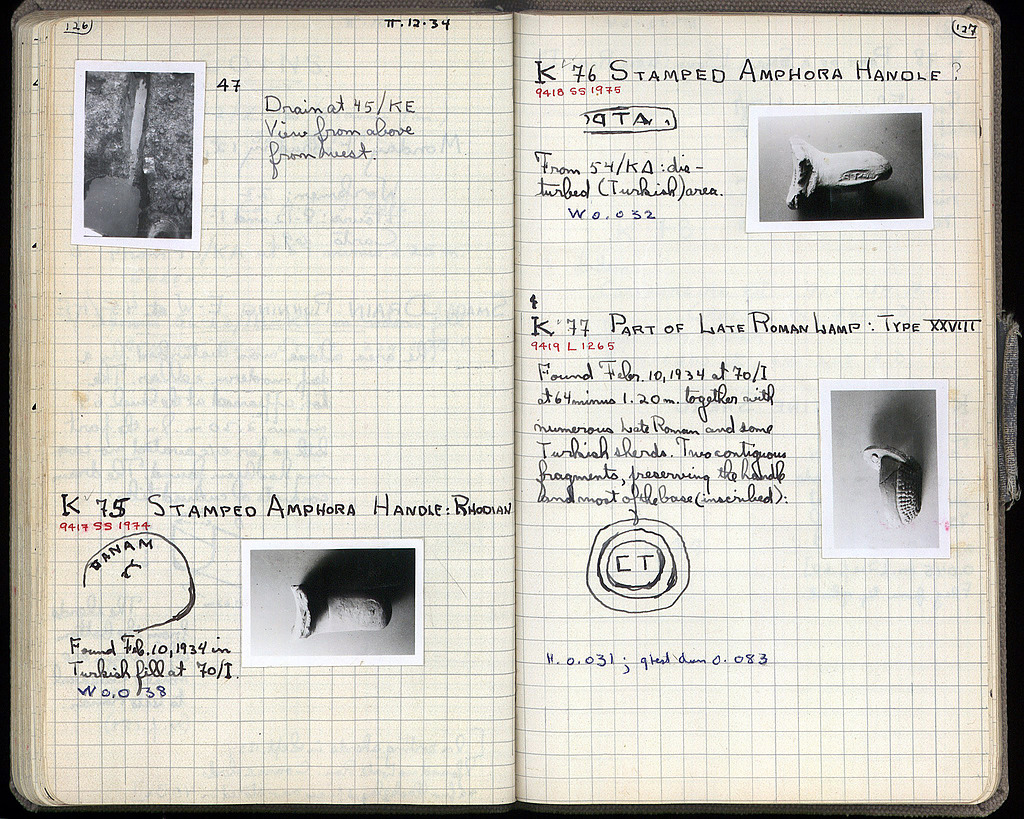 126
II.12.34
47
Drain at 45/KE
View from above
from west.
K 75 STAMPED AMPHORA HANDLE: RHODIAN
9417 SS 1974
DANAM
Found Feb. 10, 1934 in
Turkish fill at 70/I.
W 0.038
127
K 76 STAMPED AMPHORA HANDLE ?
9418 SS 1975
From 54/KΔ: dis-
turbed (Turkish) area.
W 0.032
K 77 PART OF LATE ROMAN LAMP: TYPE XXVIII
9419 L 1265
Found Febr. 10, 1934 at 70/I
at 64 minus 1.20 m. together with
numerous Late Roman and some
Turkish sherds. Two contiguous
fragments, preserving the handle
and most of the base (inscribed):
H. 0.031; gtest diam 0.083